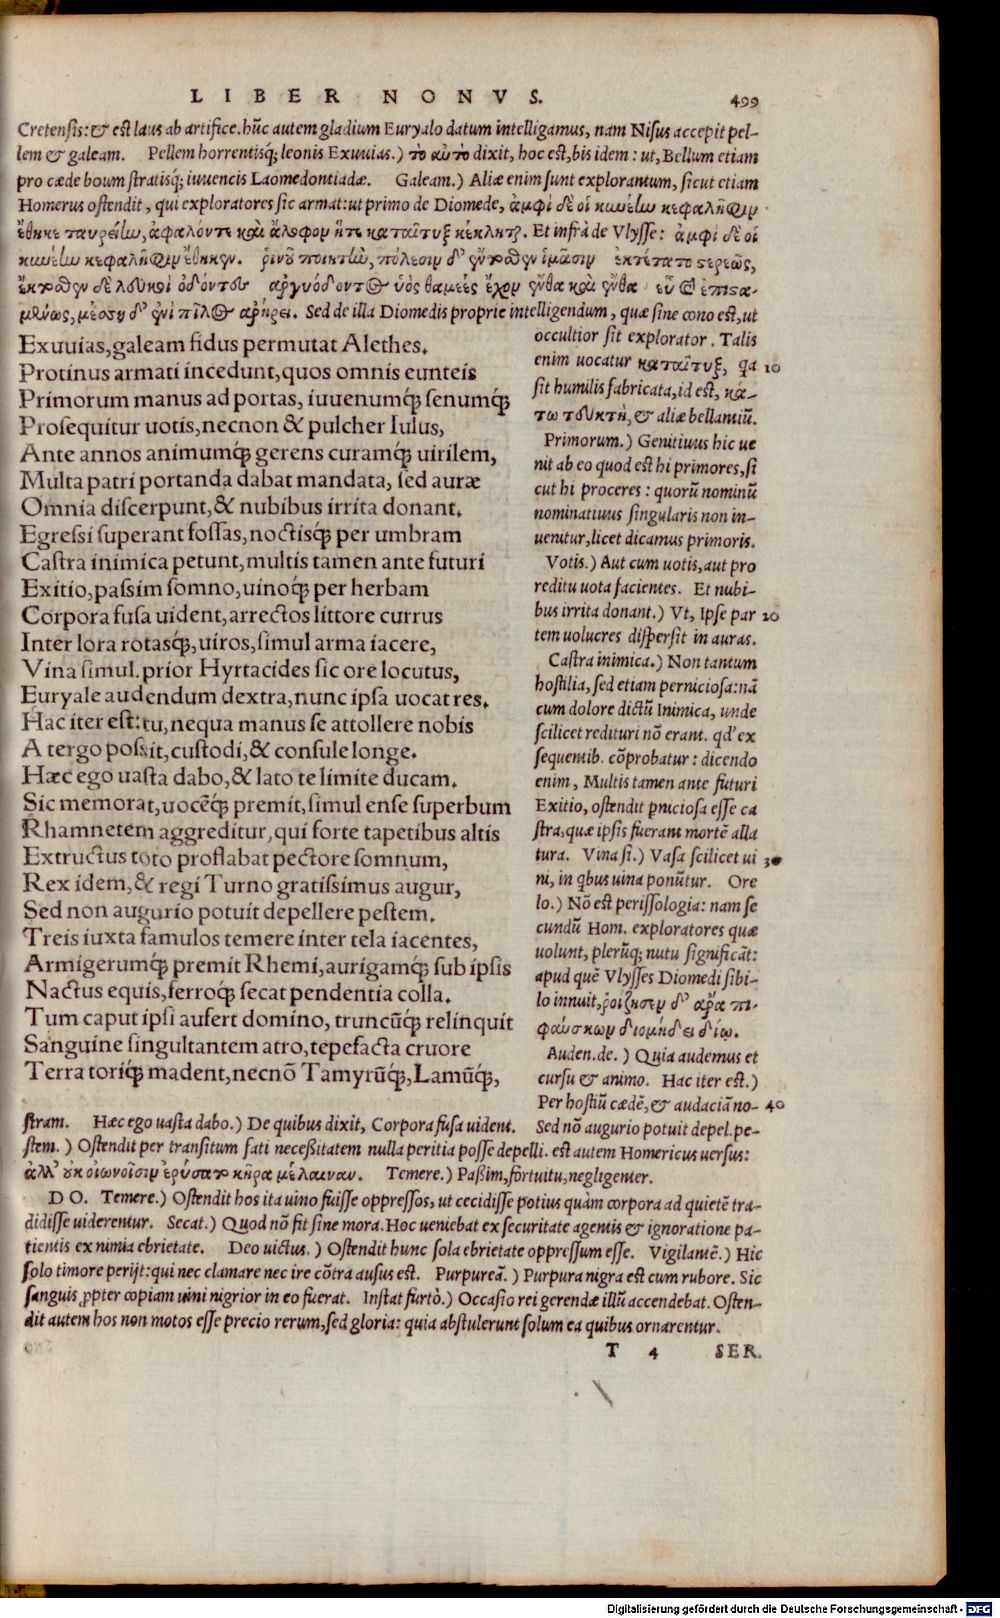 LIBER NONVS. 499
Cretensis: & est laus ab artifice. hũc autem gladium Euryalo datum intelligamus, nam Nisus accepit pel-
lem & galeam. Pellem horrentisq́; leonis Exuuias.) τὸ αὐτὸ dixit, hoc est, bis idem: ut, Bellum etiam
pro cæde boum stratisq́; iuuencis Laomedontiadæ. Galeam.) Aliæ enim sunt explorantum, sicut etiam
Homerus ostendit, qui exploratores sic armat: ut primo de Diomede, ἀμφὶ δὲ οἱ κυνέην κεφαλῆφιν
ἔθηκε ταυρείην, ἀφαλόντε καὶ ἄλοφον ἥτε καταῖτυξ κέκληται. Et infrà de Vlysse: ἀμφὶ δὲ οἱ
κυνέην κεφαλῆφιν ἔθηκεν. ῥινοῦ ποιητὴν, πόλεσιν δ' ἔντοσθεν ἱμᾶσιν ἐκτέτατο στερεῶς,
ἔκτοσθεν δὲ λευκοὶ ὀδόντες ἀργυόδοντος ὑὸς θαμέες ἔχον ἔνθα καὶ ἔνθα εὖ καὶ ἐπιστα-
μένως, μέσση δ' ἐνὶ πῖλος ἀρήρει. Sed de illa Diomedis proprie intelligendum, quæ sine cono est, ut
Exuuias, galeam fidus permutat Alethes.
Protinus armati incedunt, quos omnis eunteis
Primorum manus ad portas, iuuenumq́; senumq́;
Prosequitur uotis, necnon & pulcher Iulus,
Ante annos animumq́; gerens curamq́; uirilem,
Multa patri portanda dabat mandata, sed auræ
Omnia discerpunt, & nubibus irrita donant.
Egressi superant fossas, noctisq́; per umbram
Castra inimica petunt, multis tamen ante futuri
Exitio, passim somno, uinoq́; per herbam
Corpora fusa uident, arrectos littore currus
Inter lora rotasq́;, uiros, simul arma iacere,
Vina simul. prior Hyrtacides sic ore locutus,
Euryale audendum dextra, nunc ipsa uocat res.
Hac iter est: tu, nequa manus se attollere nobis
A tergo possit, custodi, & consule longe.
Hæc ego uasta dabo, & lato te limite ducam.
Sic memorat, uocẽq́; premit, simul ense superbum
Rhamnetem aggreditur, qui forte tapetibus altis
Extructus toto proflabat pectore somnum,
Rex idem, & regi Turno gratissimus augur,
Sed non augurio potuit depellere pestem.
Treis iuxta famulos temere inter tela iacentes,
Armigerumq́; premit Rhemi, aurigamq́; sub ipsis
Nactus equis, ferroq́; secat pendentia colla.
Tum caput ipsi aufert domino, truncũq́; relinquit
Sanguine singultantem atro, tepefacta cruore
Terra toriq́; madent, necnõ Tamyrũq́;, Lamũq́;,
occultior sit explorator. Talis
enim uocatur καταῖτυξ, qa 10
sit humilis fabricata, id est, κά-
τω τευκτὴ, & aliæ bellantiũ.
Primorum.) Genitiuus hic ue
nit ab eo quod est hi primores, si
cut hi proceres: quorũ nominũ
nominatiuus singularis non in-
uenitur, licet dicamus primoris.
Votis.) Aut cum uotis, aut pro
reditu uota facientes. Et nubi-
bus irrita donant.) Vt, Ipse par 20
tem uolucres dispersit in auras.
Castra inimica.) Non tantum
hostilia, sed etiam perniciosa: nã
cum dolore dictũ Inimica, unde
scilicet redituri nõ erant. qd' ex
sequentib. cõprobatur: dicendo
enim, Multis tamen ante futuri
Exitio, ostendit p̱niciosa esse ca
stra, quæ ipsis fuerant mortẽ alla
tura. Vina si.) Vasa scilicet ui 30
ni, in qbus uina ponũtur. Ore
lo.) Nõ est perissologia: nam se
cundũ Hom. exploratores quæ
uolunt, plerũq; nutu significãt:
apud quẽ Vlysses Diomedi sibi-
lo innuit, ῥοίζησεν δ' ἄρα πι-
φαύσκων διομήδει δίῳ.
Auden.de.) Quia audemus et
cursu & animo. Hac iter est.)
Per hostiũ cædẽ, & audaciã no- 40
stram. Hæc ego uasta dabo.) De quibus dixit, Corpora fusa uident. Sed nõ augurio potuit depel. pe-
stem.) Ostendit per transitum fati necessitatem nulla peritia posse depelli. est autem Homericus uersus:
ἀλλ' οὐκ οἰωνοῖσιν ἐρύσατο κῆρα μέλαιναν. Temere.) Passim, fortuitu, negligenter.
DO. Temere.) Ostendit hos ita uino fuisse oppressos, ut cecidisse potius quàm corpora ad quietẽ tra-
didisse uiderentur. Secat.) Quod nõ fit sine mora. Hoc ueniebat ex securitate agentis & ignoratione pa-
tientis ex nimia ebrietate. Deo uictus.) Ostendit hunc sola ebrietate oppressum esse. Vigilantẽ.) Hic
solo timore perijt: qui nec clamare nec ire cõtra ausus est. Purpureã.) Purpura nigra est cum rubore. Sic
sanguis ꝓpter copiam uini nigrior in eo fuerat. Instat furtò.) Occasio rei gerendæ illũ accendebat. Osten-
dit autem hos non motos esse precio rerum, sed gloria: quia abstulerunt solum ea quibus ornarentur.
T 4 SER.
Digitalisierung gefördert durch die Deutsche Forschungsgemeinschaft - DFG